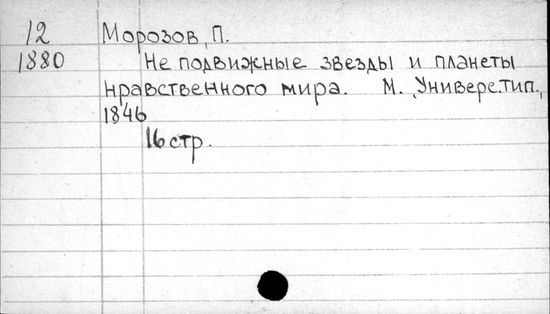 12 Морозов, П.
1880 Не подвижные звезды и планеты
нравственного мира. М., Универс.тип.,
1846
16 стр.